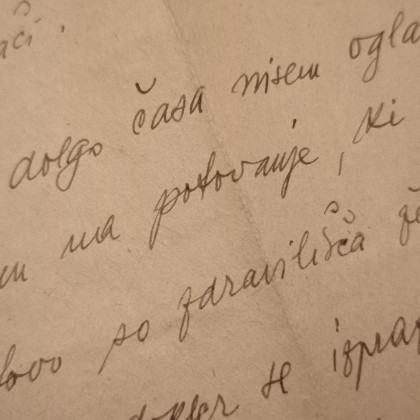 dolgo časa nisem ogla
na potovanje, ki
so zdravilišča
se izpra